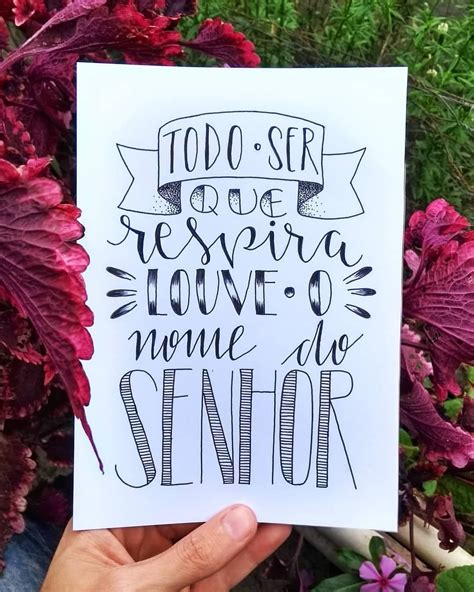 TODO • SER
QUE
respira
LOUVE • O
nome do
SENHOR